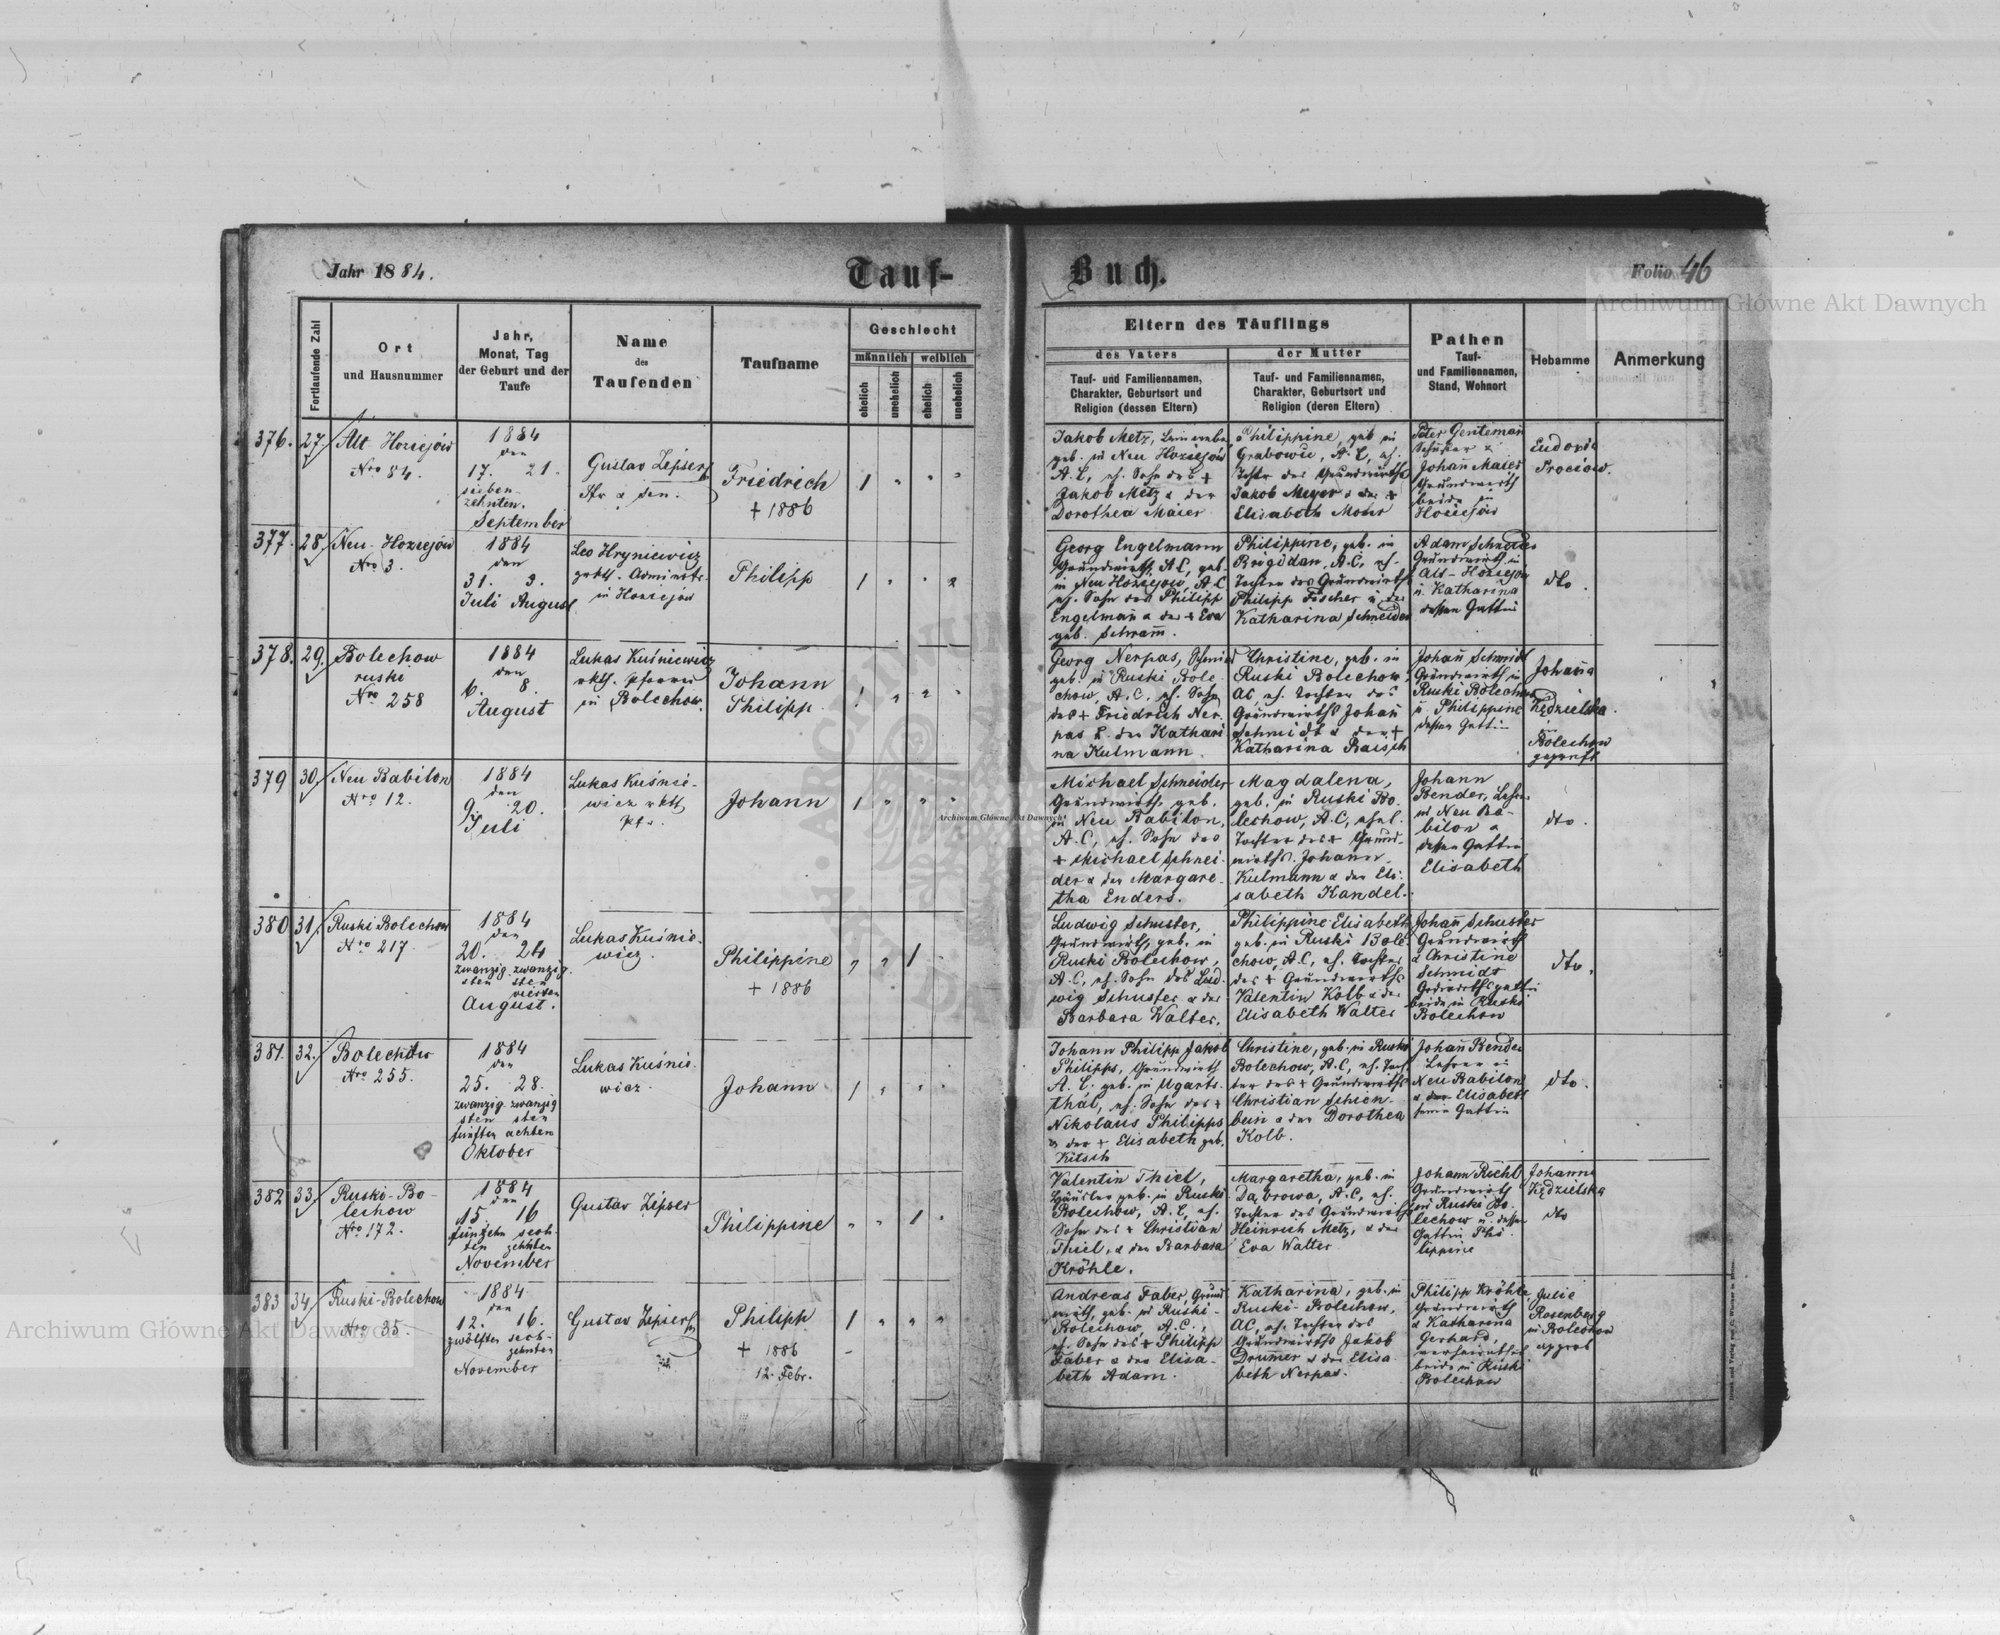 Jahr 1884.
Tauf-
Buch.
Folio 46
Archiwum Główne Akt Dawnych
Fortlaufende Zahl
Ort
und Hausnummer
Jahr,
Monat, Tag
der Geburt und der
Taufe
Name
des
Taufenden
Taufname
Geschlecht
männlich
weiblich
ehelich
unehelich
ehelich
unehelich
Eltern des Täuflings
des Vaters
Tauf- und Familiennamen,
Charakter, Geburtsort und
Religion (dessen Eltern)
der Mutter
Tauf- und Familiennamen,
Charakter, Geburtsort und
Religion (deren Eltern)
Pathen
Tauf-
und Familiennamen,
Stand, Wohnort
Hebamme
Anmerkung
376.
27
Alt Hoziejów
Nro 54.
1884
den
17. 21.
sieben-
zehnten.
September
Gustav Zipser
Pfr
Friedrich
+ 1886
1
Jakob Metz,
geb. in Neu Hoziejów
A.C, eh. Sohn des +
Jakob Metz & der
Dorothea Maier
Philippine, geb in
Grabowic, A.C, eh.
Tochter des Grundwirths
Jakob Meyer & der +
Elisabeth
Peter Genteman
Johan̄ Maier
Grundwirth
beide in
Hoziejów
377.
28
Neu-Hoziejów
Nro 3.
1884
den
31. 3.
Juli August
Leo Hryniewicz
grkth. Administr.
in Hoziejów
Philipp
1
Georg Engelmann
Grundwirth, A.C, geb.
in Neu Hoziejow, A.C
eh. Sohn des Philipp
Engelman̄ & der + Eva
geb. Schram̄.
Philippine, geb. in
A.C, eh.
Tochter des Grundwirths
Philipp Fischer u. der
Katharina Schneider
Adam Schneider
Grundwirth in
Alt-Hoziejów
u. Katharina
dessen Gattin
dto.
378.
29.
Bolechow
ruski
Nro 258
1884
den
6. 8.
August
Lukas Kuśniewicz
rkth. Pfarrer
in Bolechow.
Johann
Philipp
1
Georg Nerpas, Schmied
geb. in Ruski Bole-
chow, A.C, eh. Sohn
des + Friedrich Ner-
pas & der Kathari
na Kulmann.
Christine, geb. in
Ruski Bolechow
AC, eh. Tochter des
Grundwirths Johan̄
Schmidt & der +
Katharina Raisch
Johan̄ Schmidt
Grundwirth in
Ruski Bolechow
u. Philippine
dessen Gattin
Johan̄a
Kędzielska.
Bolechow
geprüft
379
30.
Neu Babilon
Nro 12.
1884
den
9. 20.
Juli
Lukas Kuśnie-
wicz rkth
Pfr.
Johann
1
Michael Schneider
Grundwirth, geb.
in Neu Babilon,
A.C, eh. Sohn des
+ Michael Schnei-
der & der Margare-
tha Enders.
Magdalena,
geb. in Ruski Bo-
lechow, A.C, ehel.
Tochter des + Grund-
wirths. Johann
Kulmann & der Eli-
sabeth Kandel.
Johann
Bender, Lehrer
in Neu Ba-
bilon &
dessen Gattin
Elisabeth
dto.
Archiwum Główne Akt Dawnych
380
31.
Ruski Bolechow
Nro 217.
1884
den
20. 24
zwanzig. zwanzig.
sten sten
vierten
August.
Lukas Kuśnie-
wicz.
Philippine
+ 1886
1
Ludwig Schuster,
Grundwirth, geb. in
Ruski Bolechow,
A.C, eh. Sohn des Lud-
wig Schuster & der
Barbara Walter.
Philippine Elisabeth
geb. in Ruski Bole-
chow, A.C, eh. Tochter
des + Grundwirths
Valentin Kolb & der
Elisabeth Walter
Johan̄ Schuster
Grundwirth
& Christine
Schmidt
Grdwirthsgattin
beide in Ruski
Bolechow
dto.
381.
32.
Bolechów
Nro 255.
1884
den
25. 28.
zwanzig. zwanzig
sten sten
fünften achten
Oktober
Lukas Kuśnie-
wicz.
Johann
1
Johann Philipp Jakob
Philipps, Grundwirth
A.C. geb. in Ugarts-
thal, eh. Sohn des +
Nikolaus Philipps
& der + Elisabeth geb.
Kitsch
Christine, geb. in Ruski
Bolechow, A.C, eh. Toch-
ter des + Grundwirths
Christian Schien-
bein & der Dorothea
Kolb.
Johan̄ Bender
Lehrer in
Neu Babilon
& Elisabeth
seine Gattin
dto.
382
33.
Ruski-Bo-
lechow
Nro 172.
1884
den
15. 16
fünfzehn sech-
ten zehnten
November
Gustav Zipser
Philippine
1
Valentin Thiel,
Häusler geb. in Ruski
Bolechow, A.C, eh.
Sohn des + Christian
Thiel, & der Barbara
Kröhle.
Margaretha, geb. in
Dąbrowa, A.C, eh.
Tochter des Grundwirths
Heinrich Metz, & der
Eva Walter
Johann Riehl
Grundwirth
in Ruski Bo-
lechow u. dessen
Gattin Phi-
lippine
Johanna
Kędzielska
dto
383
34.
Ruski-Bolechow
Nro 35.
1884
den
12. 16.
zwölften sech-
zehnten
November
Gustav Zipser
Philipp
+ 1886
12. Febr.
1
Andreas Faber, Grund
wirth, geb. in Ruski-
Bolechow, A.C.,
eh. Sohn des + Philipp
Faber & der Elisa-
beth Adam.
Katharina, geb. in
Ruski-Bolechow,
AC, eh. Tochter des
Grundwirths Jakob
Drum̄er & der Elisa-
beth Nerpas.
Philipp Kröhle
Grundwirth
& Katharina
Gerhard,
beide in Ruski
Bolechow
Julie
Rosenberg
in Bolechow
Archiwum Główne Akt Dawnych